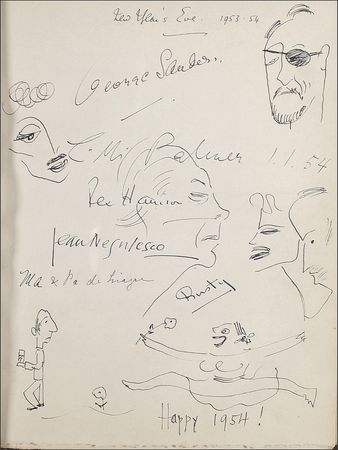 New Year's Eve. 1953-54
George Sanders.
Lilli Palmer 1.1.54
Rex Harrison
Jean Negulesco
Ma & Pa de
Rusty
Happy 1954!